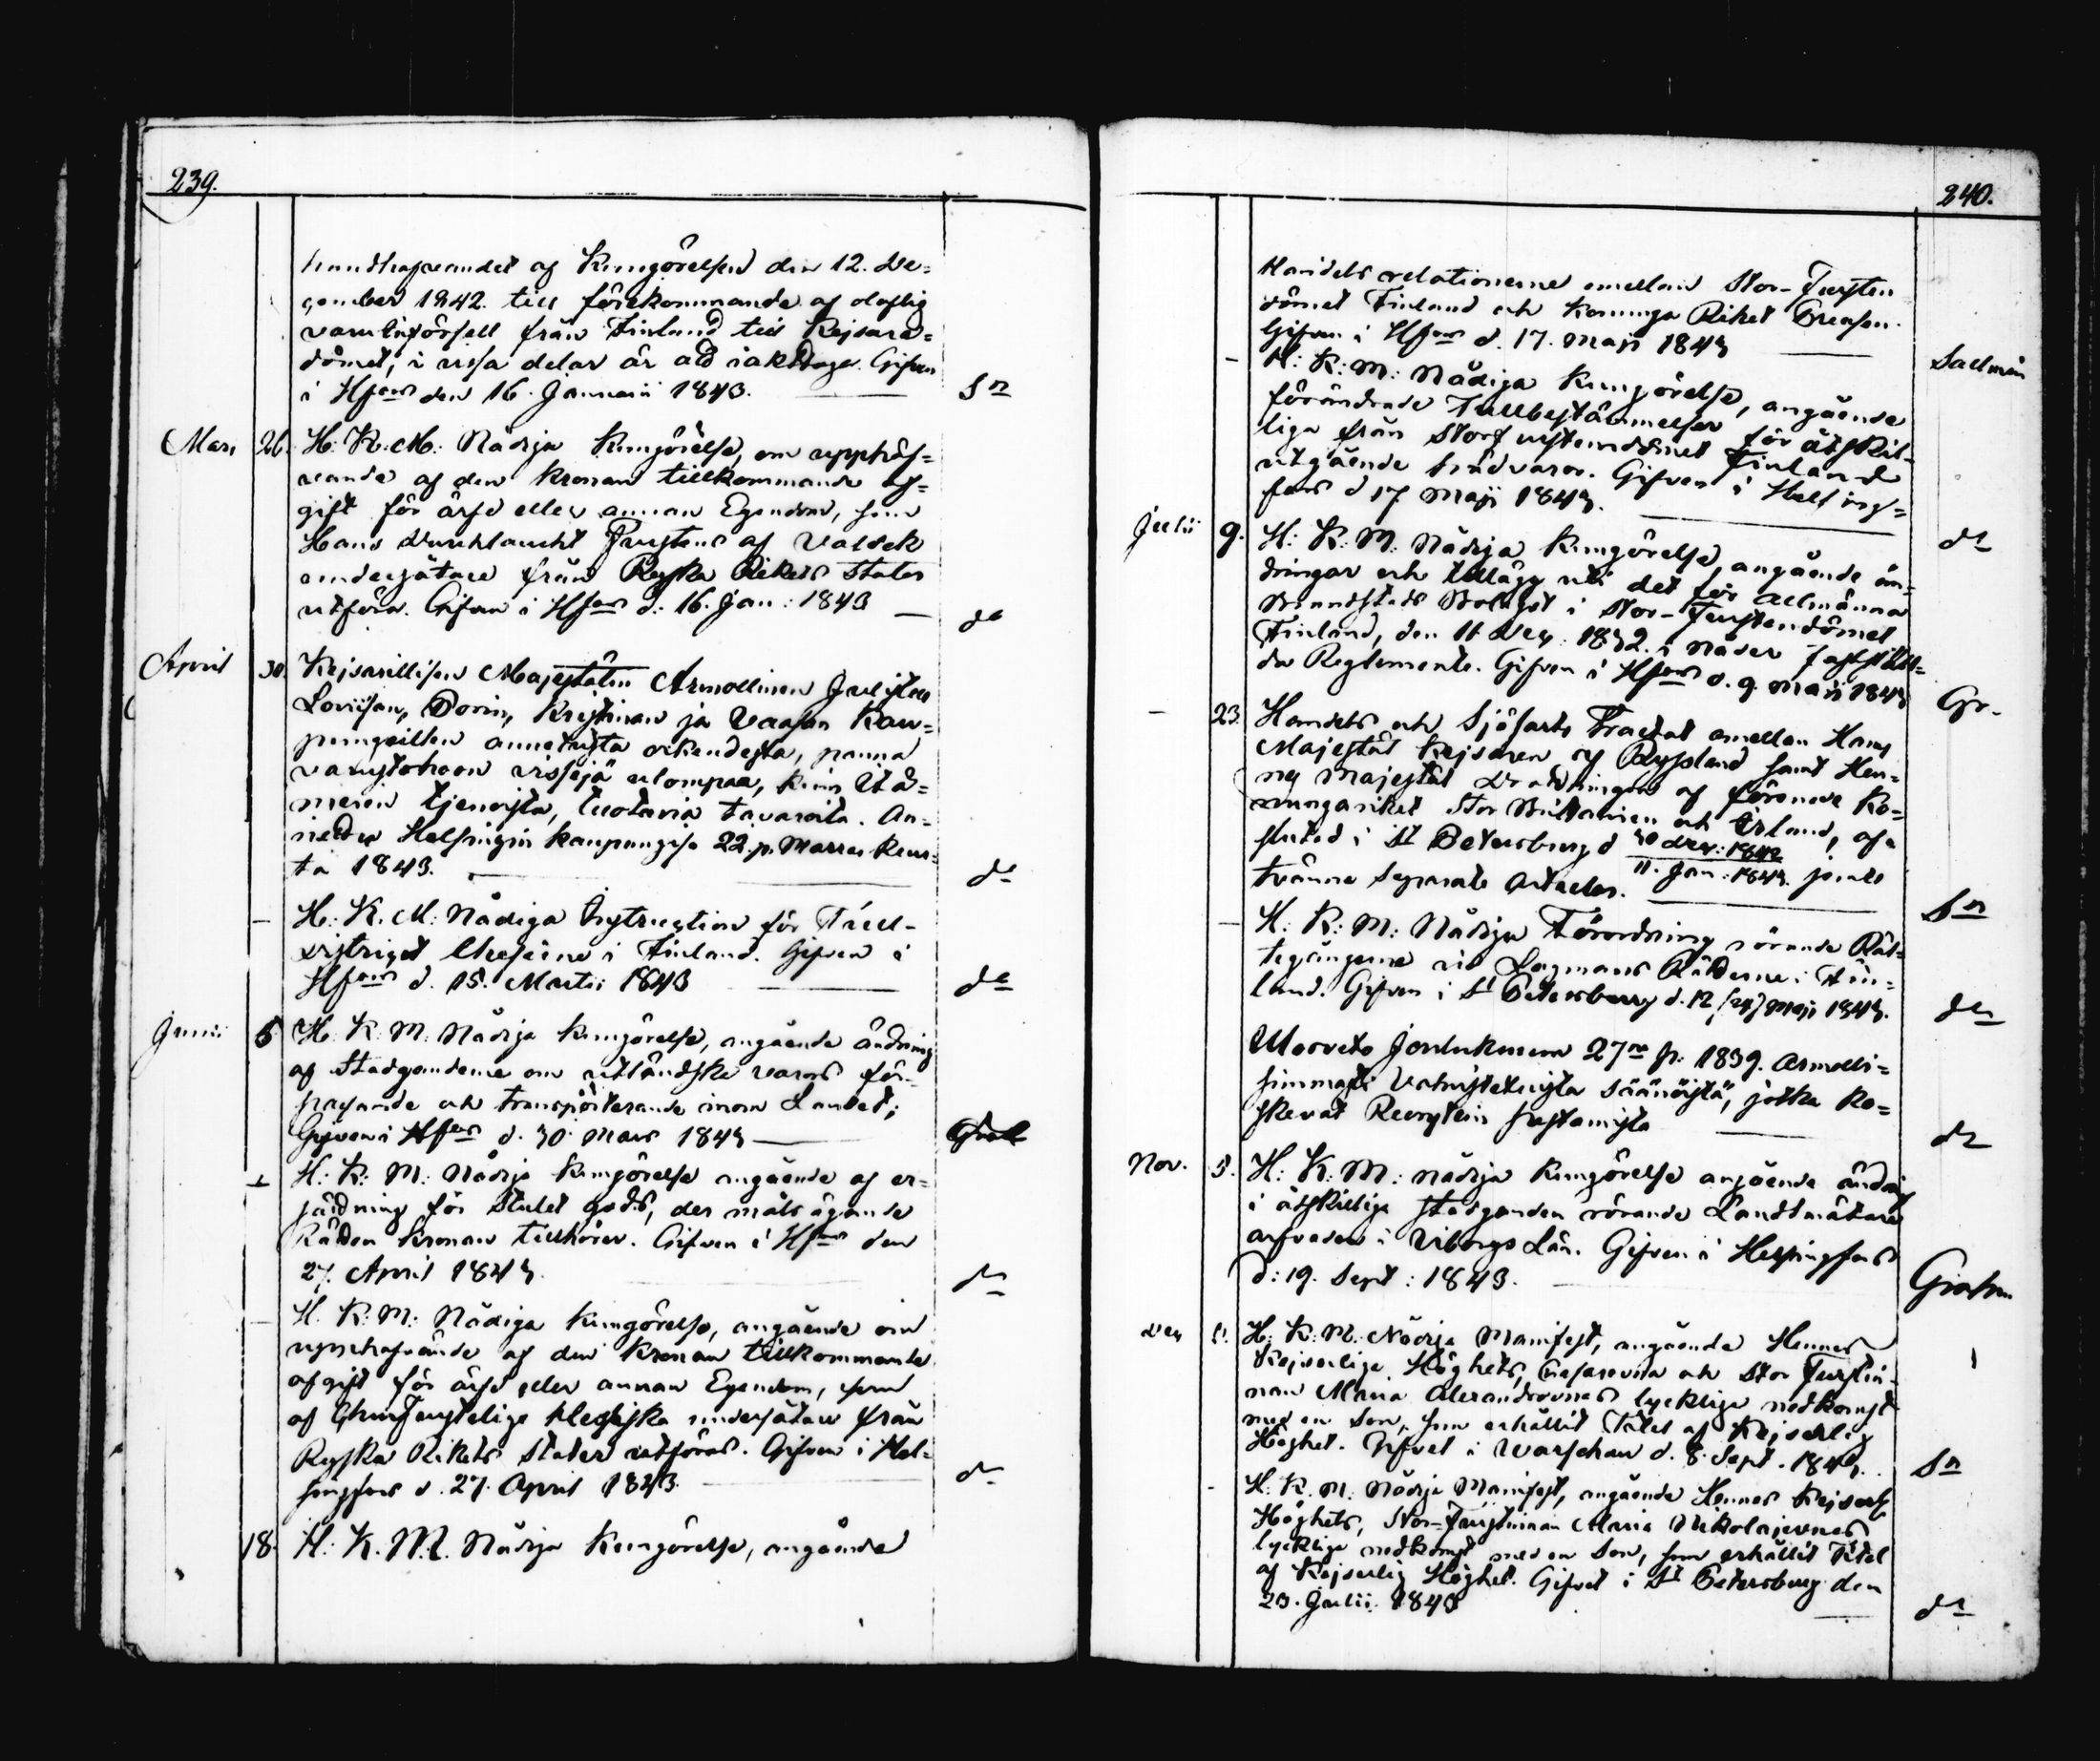 239.
handhafvandet af Kungörelsen den 12. De=
cember 1842. till förekommande af olaglig
varuinförsell från Finland till Kejsare=
dömet, i vissa delar är att iakttaga. Gifven
i Hfors den 16. Januarii 1843. Sn
Mars 26. H. K. M: Nådiga Kungörelse, om upphäf=
vande af den Kronan tillkommande af=
gift för ärfd eller annan Egendom, som
Hans Durchlaucht Furstens af Valdek
undersåtare från Ryska Rikets stater
utföra. Gifven i Hfors d: 16. Jan: 1843 do
April 30. Kejsarillisen Majestätin Armollinen Julistus
Loviisan, Porin, Kristinan ja Vaasan Kau=
pungeillen annetusta oikeudesta, panna
varustohoon vissejä ulompaa, kuin Itä=
meren tjenoista, tuotavia tavaroita. An=
nettu Helsingin kaupungisa 22. p. Marras kuus=
ta 1843. do
— H: K. M: Nådiga Instruction för Tull-
distriget Cheferne i Finland. Gifven i
Hfors d. 15. Martii 1843 do
Junii 5 H. K. M. Nådiga Kungörelse, angående ändring
af Stadgandena om utländska varors för=
passande och transporterande inom Landet;
Gifven i Hfors d. 30. Mars 1843
— H: K: M: Nådiga Kungörelse angående af er=
sättning för stulet gods, der måls ägande
Rätten Kronan tillhörer. Gifven i Hfors den
27. April 1843. do
— H. K: M: Nådiga Kungörelse, angående
upphäfvande af den Kronan tillkommande
afgift för ärfd eller annan Egendom, som
af Churfurstelige Hessiska undersåtare från
Ryska Rikets Stater utföras. Gifven i Hel=
singfors d. 27. April 1843. do
18. H: K. M. Nådiga Kungörelse, angående
240.
Handels relationerne emellan Stor-Fursten
dömet Finland och Konunga Riket Preusen.
Gifven i Hfors d. 17. Maji 1843 Sallmén
— H: K: M: Nådiga Kungörelse, angående
förändrade Tullbestämmelser för åtskil-
liga från Storfurstendömet Finland
utgående trädvaror. Gifven i Helsing=
fors d 17 Maji 1843. do
Julii 9. H: K: M: Nådiga Kungörelse, angående än=
dringar och tillägg uti det för Allmänna
Brandstods Bolaget i Stor-Furstendömet
Finland, den 11 Dec. 1832. i nåder fastställ=
da Reglemente. Gifven i Hfors d. 9. Maji 1843 Gr.
— 23. Handels och Sjöfarts Tractat emellan Hans
Majestät Kejsaren af Ryssland samt Hen=
nes Majestät Drottningen af förenade Ko=
nungariket Stor Brittanien och Irland, af=
slutad i St Petersburg d 30 Dec: 1842
11. Jan: 1843. jemte
tvänne Separate Articlar. Sn
— H: K: M: Nådiga Förordning rörande Rät=
tegångerne vid Lagmans Rätterne i Fin=
land. Gifven i St Petersburg d. 12 (24) Maji 1843. do
Marras Joulukuun 27na p: 1839. Armolli=
simmasti Vahvistetuista säänöistä, jotka ko=
skevat do
Nov. 5. H: K: M: Nådiga Kungörelse angående ändring
i åtskilliga stadganden rörande Landtmätare
arfvoden i Viborgs Län. Gifven i Helsingfors
d: 19. Sept: 1843. Grahn
Dec H: K: M: Nådiga Manifest, angående Hennes
Kejserliga Höghets, Cesarevna och Stor Furstin-
nan Maria Alexandrovnas lyckliga nedkomst
med en Son, som erhållit Titel af Kejserlig
Höghet. Gifvet i Warschau d. 8. Sept. 1843. Sn
- H. K. M. Nådiga Manifest, angående Hennes Kejserl.
Höghets, Stor-Furstinnan Maria Nikolajevnas
lyckliga nedkomst med en Son, som erhållit Titel
af Kejserlig Höghet. Gifvet i St Petersburg den
23. Julii 1843 do